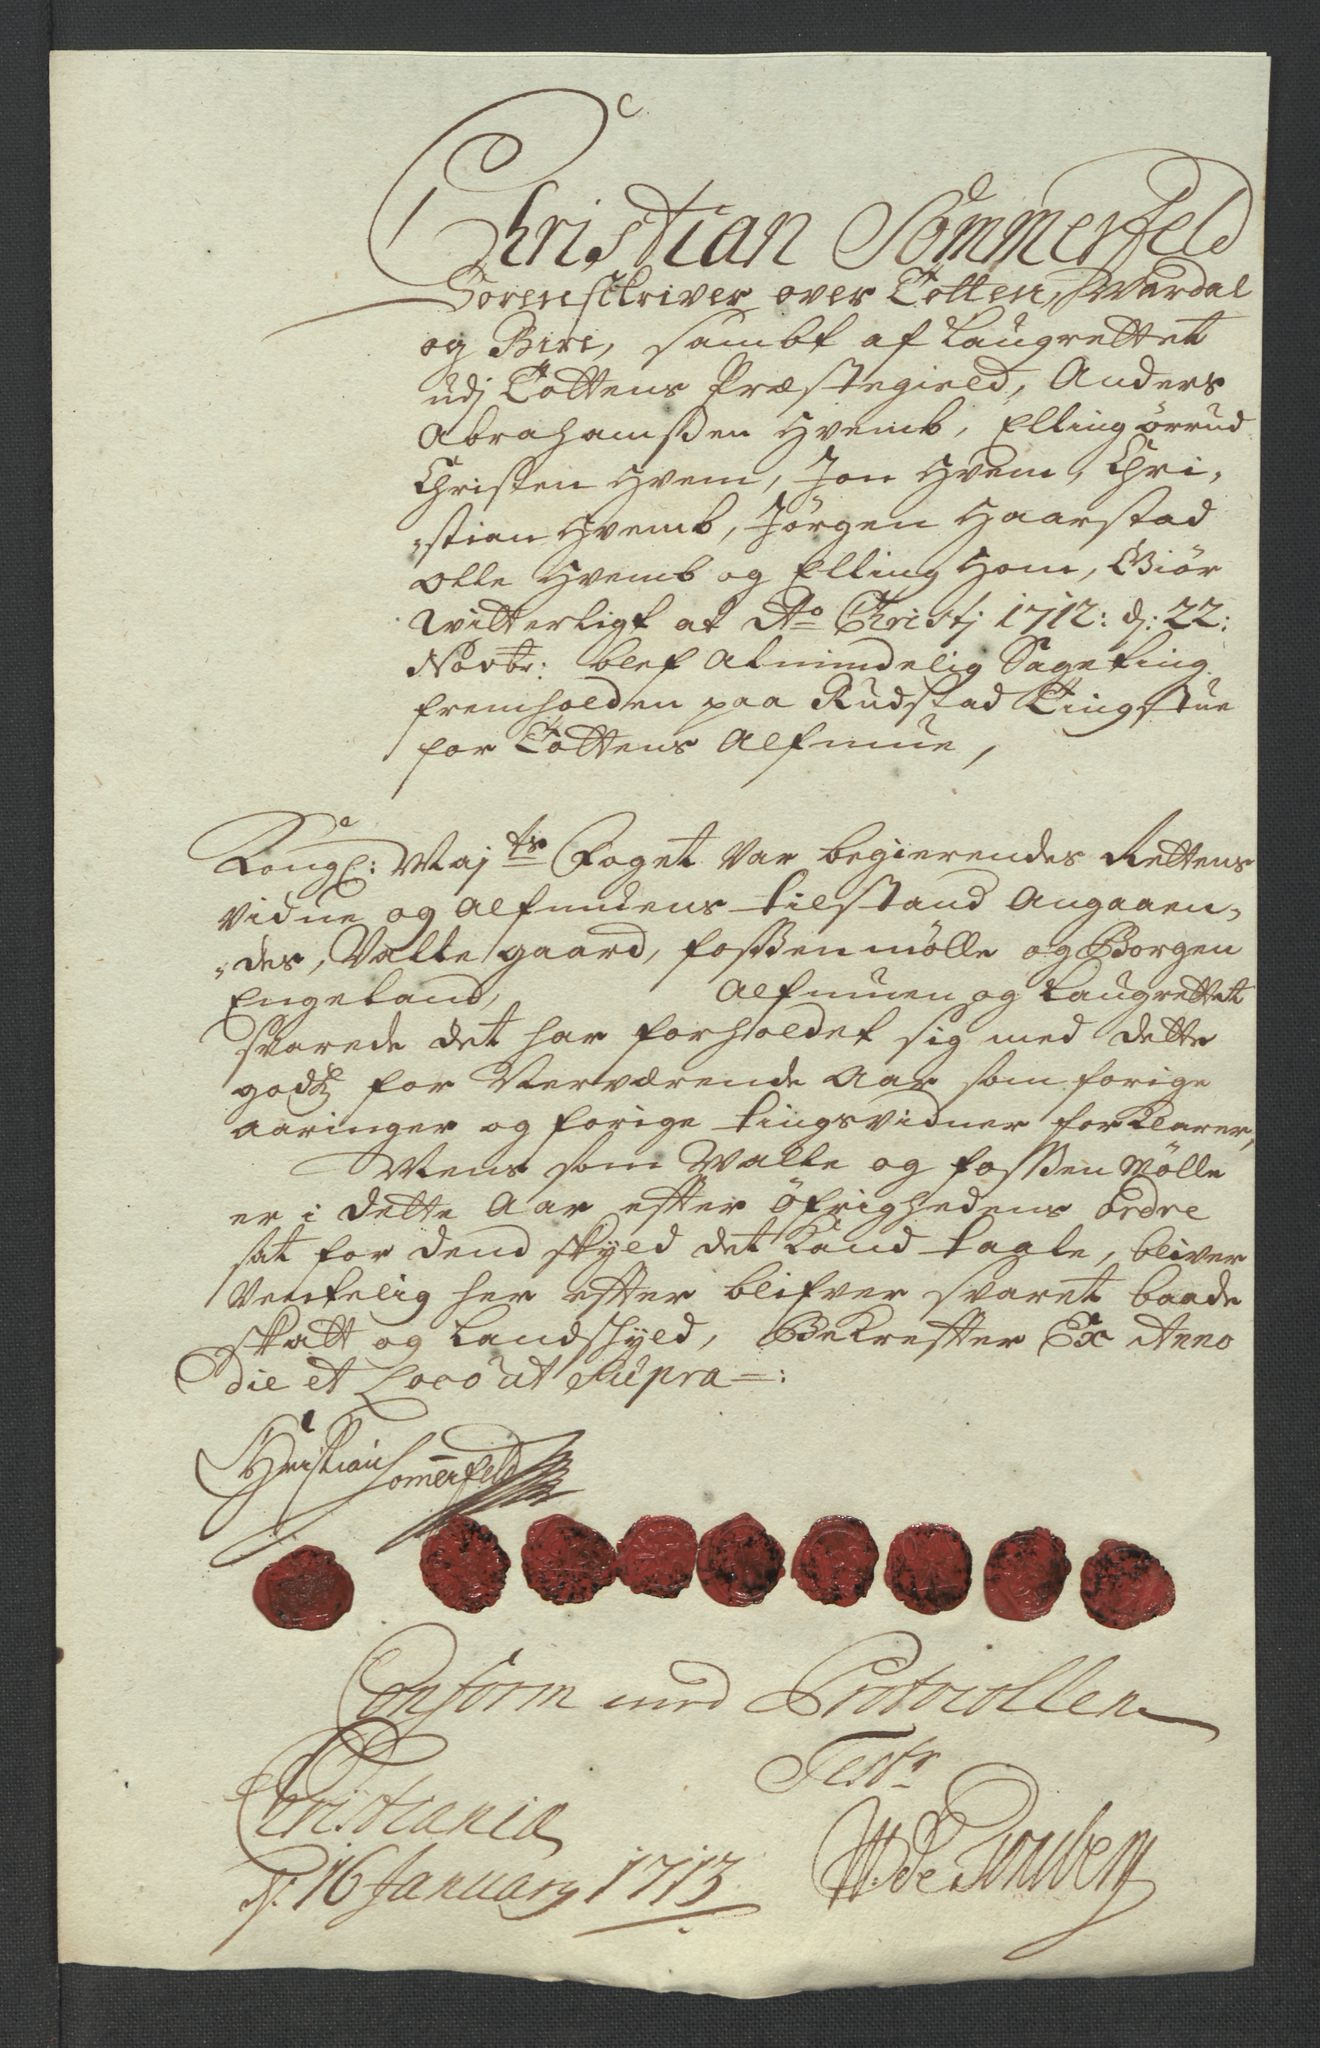 Christian Sommerfeld
Sorenskriver over Totten, Wardal
og Biri, sambt af Laugrettet
udj Tottens Præstegield, Anders
Abrahamsen Hvemb, Elling Ørrud
Christen Hvem, Jon Hvem, Chri-
-stian Hvemb, Jørgen Haarstad
Olle Hvemb og Elling Hom, Giör
Witterligt at Ao Christj 1712: d: 22:
Novbr: blef Almindelig Sageting
fremholden paa Rudstad Tingstue
for Tottens Alfmue,
Kongl: Mayts Foget var begierendes Rettens
vidne og Alfmuens tilstand Angaaen-
-des, Valle gaard, fossen mølle og Borgen
Engeland, Alfmuen og Laugrettet
svarede det har forholdet sig med dette
godtz for Nerværende Aar som forige
aaringer og forige tingsvidner forklarer,
Mens som Walle og fossen Mölle
er i dette Aar efter Öfrighedens ordre
sat for dend skyld det kand taale, bliver
Ventelig her efter blifver svaret baade
skatt og Landskyld, Bekrefter Ex Anno
die et Loco ut Supra =:
Christian Somerfeld
Conform med Protocollen
Christiania Test:
d: 16 January 1713 W: de Tonsberg